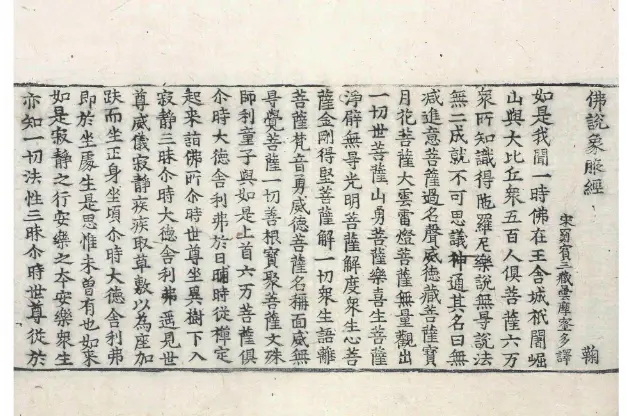 佛說象腋經
宋罽賓三藏曇摩蜜多譯 鞠
如是我聞一時佛在王舍城祇闍崛
山與大比丘衆五百人俱菩薩六万
衆所知識得陁羅尼樂說無㝵說法
無二成就不可思議神通其名曰無
減進意菩薩過名聲威德藏菩薩寶
月花菩薩大雲雷燈菩薩無量觀出
一切世菩薩山勇菩薩樂喜生菩薩
淨辟無㝵光明菩薩解度衆生心善
薩金剛得堅菩薩解一切衆生語離
菩薩梵音勇威德菩薩名稱面威無
㝵覺菩薩一切善根寶聚菩薩文殊
師利童子與如是上首六万菩薩俱
尒時大德舍利弗於日晡時從禪定
起來詣佛所尒時世尊坐異樹下入
寂静三昧尒時大德舍利弗遥見世
尊威儀寂静疾疾取草敷以為座加
趺而坐正身坐頃尒時大德舍利弗
即於坐處生是思惟未曽有也如来
如是寂静之行安樂之夲安樂衆生
亦知一切法性三昧尒時世尊從於